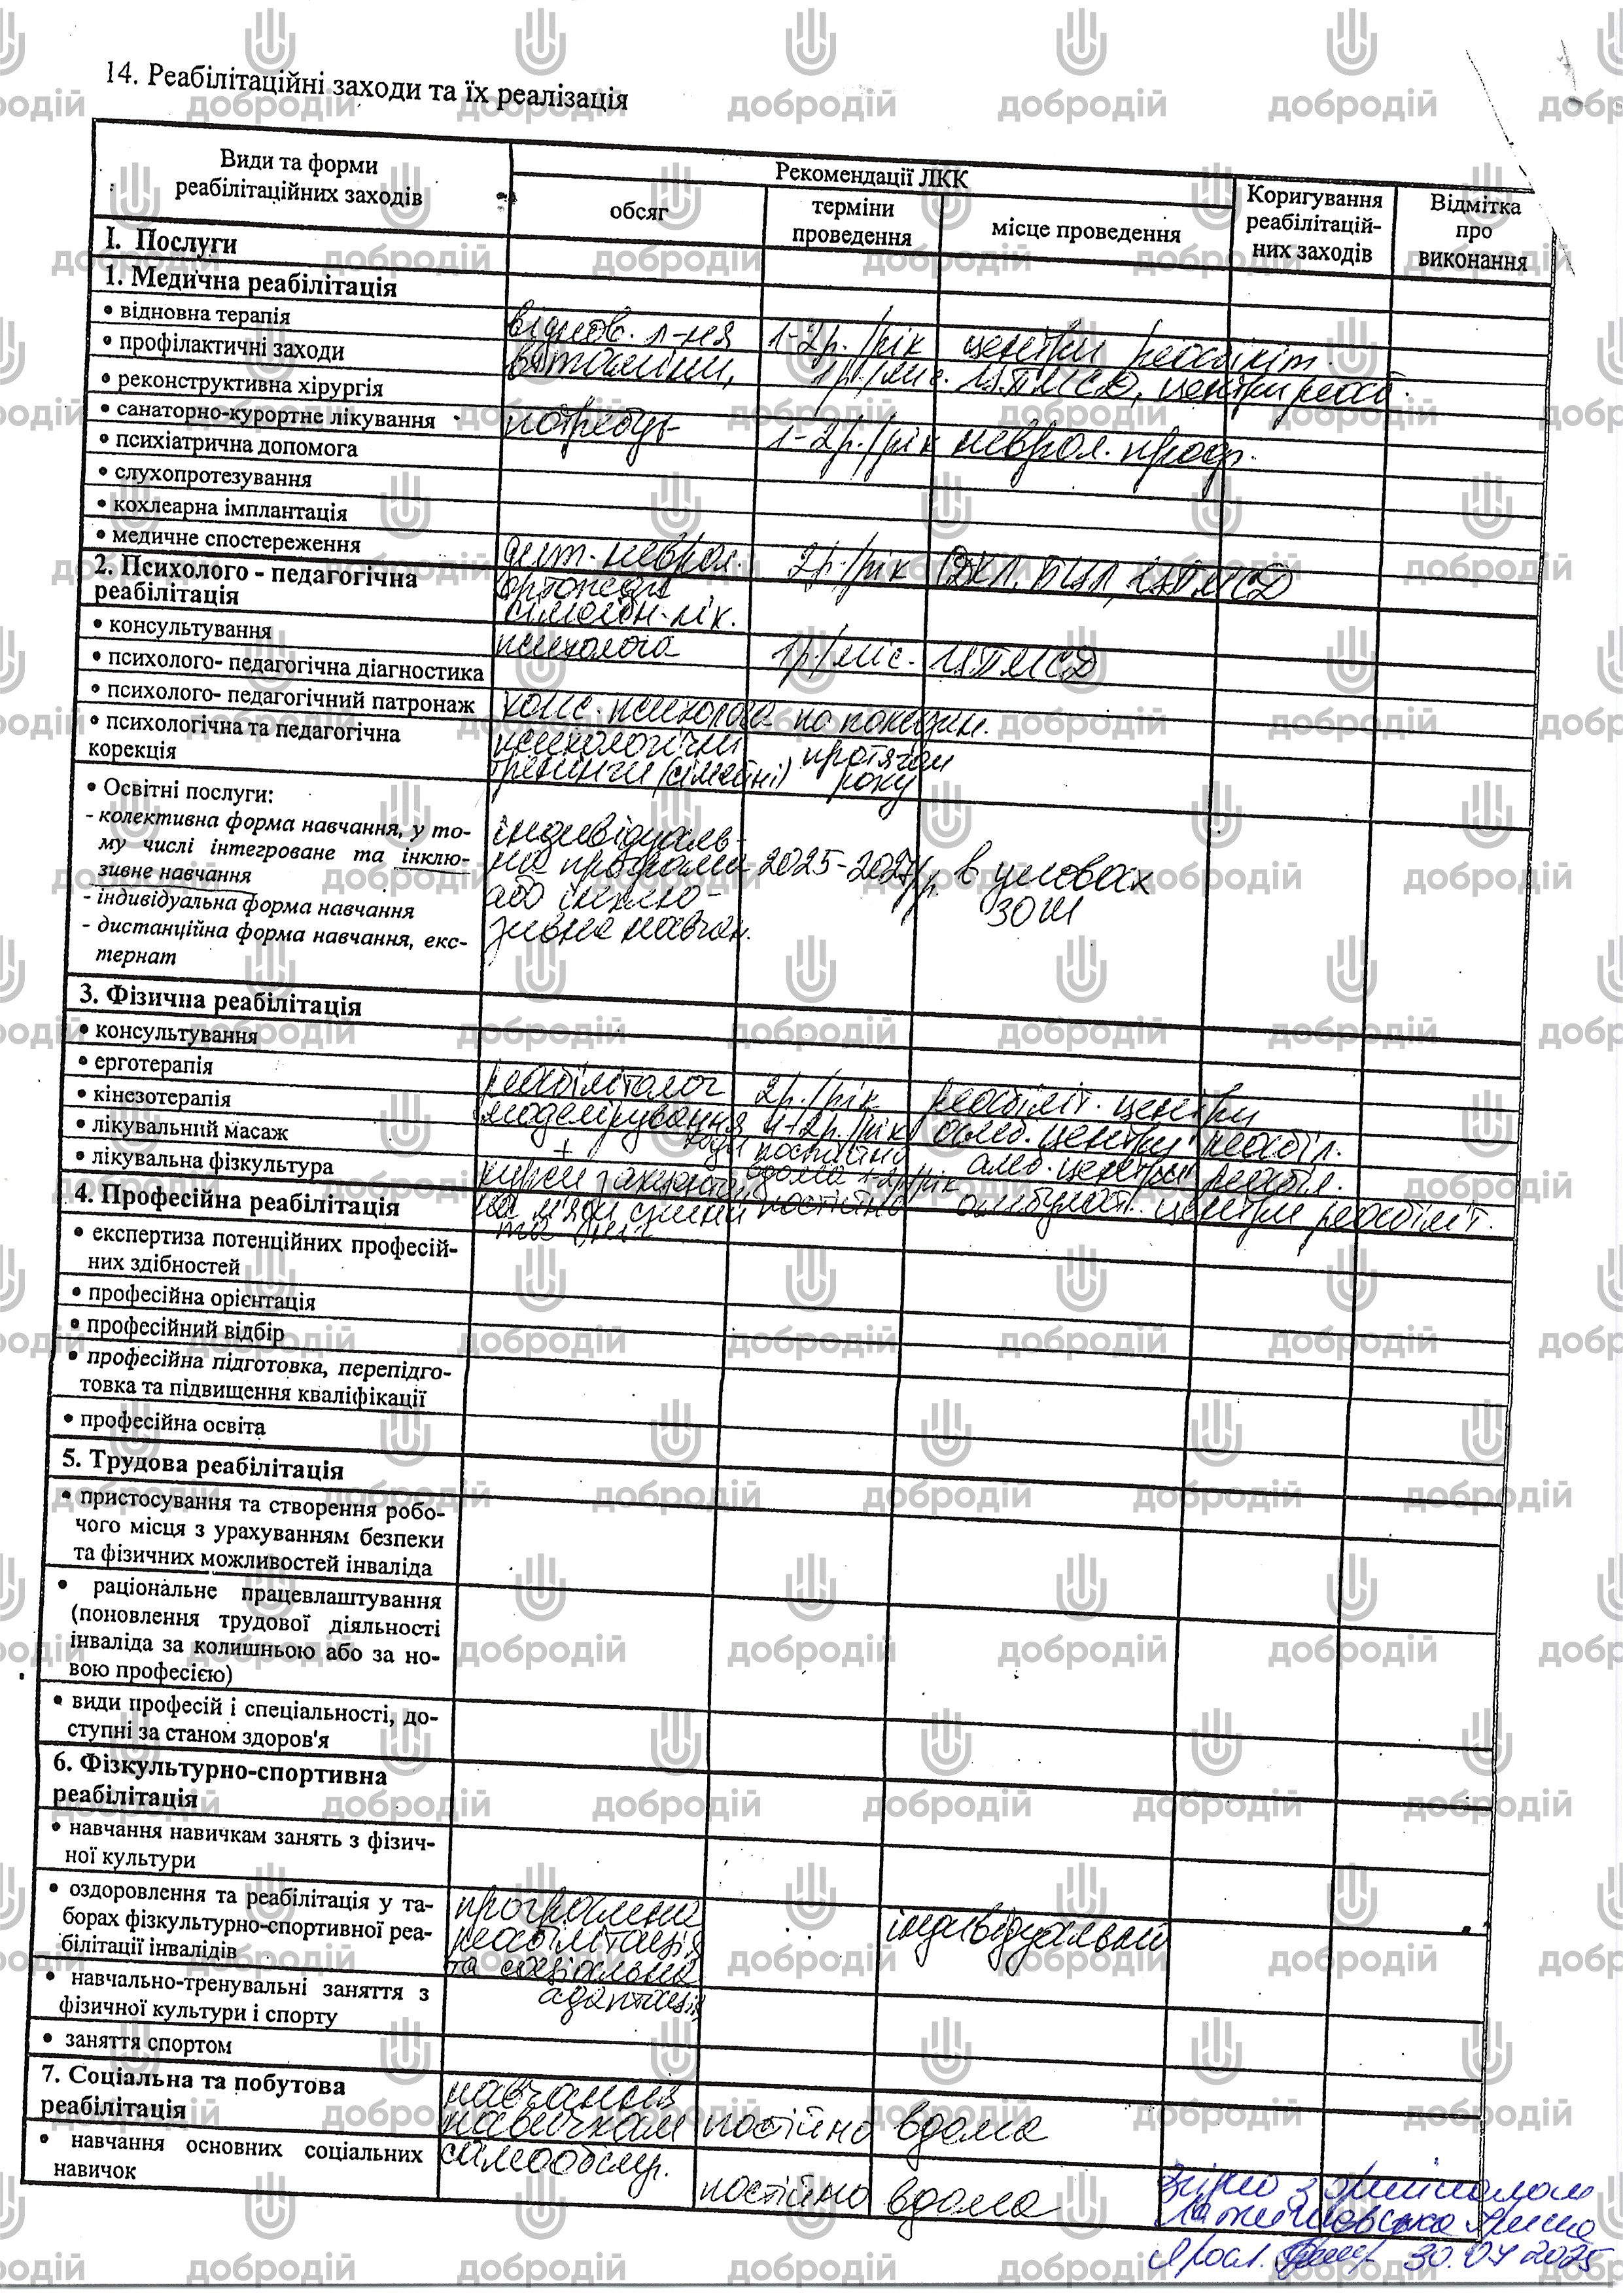 14. Реабілітаційні заходи та їх реалізація
Види та форми
реабілітаційних заходів
Рекомендації ЛКК
обсяг
терміни
проведення
місце проведення
Коригування
реабілітацій-
них заходів
Відмітка
про
виконання
I. Послуги
1. Медична реабілітація
• відновна терапія
віднов. л-ня 1-2р./рік центри реабіліт.
• профілактичні заходи
вітаміни, 1р./міс. ЦПМСД, центри реаб.
• реконструктивна хірургія
• санаторно-курортне лікування
потребує 1-2р./рік неврол. проф.
• психіатрична допомога
• слухопротезування
• кохлеарна імплантація
• медичне спостереження
дит. неврол. 2р./рік ОДКЛ, ЦПМСД
2. Психолого - педагогічна
реабілітація
ортопед
сімейн. лік.
• консультування
психолога 1р./міс. ЦПМСД
• психолого- педагогічна діагностика
• психолого- педагогічний патронаж
конс. психолога по показан.
• психологічна та педагогічна
корекція
психологічні протягом
тренінги (сімейні) року
• Освітні послуги:
- колективна форма навчання, у то-
му числі інтегроване та інклю-
зивне навчання
- індивідуальна форма навчання
- дистанційна форма навчання, екс-
тернат
індивідуаль-
на програма 2025-2027р. в умовах
або інклю- ЗОШ
зивне навчан.
3. Фізична реабілітація
• консультування
• ерготерапія
реабілітолог 2р./рік реабіліт. центри
• кінезотерапія
моделірування 1-2р./рік амб. центри реабіл.
• лікувальний масаж
+ постійно амб. центри реабіл.
• лікувальна фізкультура
курси вдома 1-2р/рік
постійно амбулат. центри реабіліт.
4. Професійна реабілітація
• експертиза потенційних професій-
них здібностей
• професійна орієнтація
• професійний відбір
• професійна підготовка, перепідго-
товка та підвищення кваліфікації
• професійна освіта
5. Трудова реабілітація
• пристосування та створення робо-
чого місця з урахуванням безпеки
та фізичних можливостей інваліда
• раціональне працевлаштування
(поновлення трудової діяльності
інваліда за колишньою або за но-
вою професією)
• види професій і спеціальності, до-
ступні за станом здоров'я
6. Фізкультурно-спортивна
реабілітація
• навчання навичкам занять з фізич-
ної культури
• оздоровлення та реабілітація у та-
борах фізкультурно-спортивної реа-
білітації інвалідів
програма індивідуальний
реабілітація
та соціальна
адаптація
• навчально-тренувальні заняття з
фізичної культури і спорту
• заняття спортом
7. Соціальна та побутова
реабілітація
навчання
навичкам постійно вдома
• навчання основних соціальних
навичок
самообслуг.
постійно вдома
Згідно з оригіналом
30.07 2025
добродій